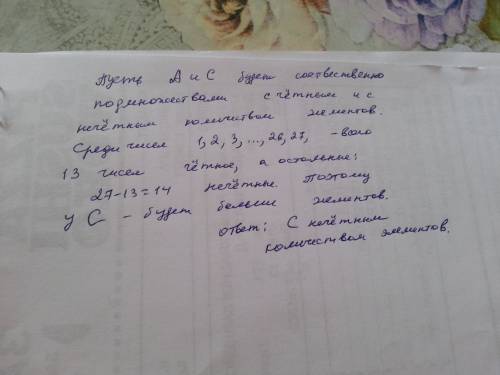 Пусть A и C будет соотвественно
подмножествами с чётным и с
нечётным количеством элементов.
Среди чисел 1, 2, 3, ..., 26, 27, - всего
13 чисел чётное, а остальные:
27-13=14 нечётные. Поэтому
у C - будет больше элементов.
ответ: С нечётным
количеством элементов.